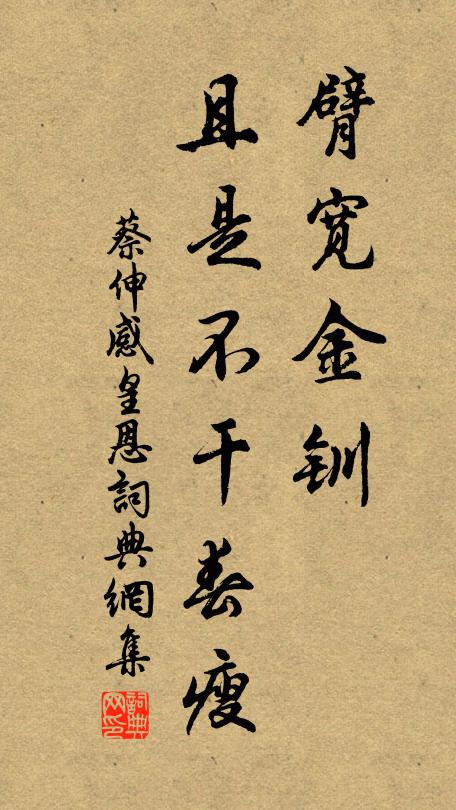 臂寬金釧
且是不干春瘦
蔡伸感皇恩詞典網集
詞典網印